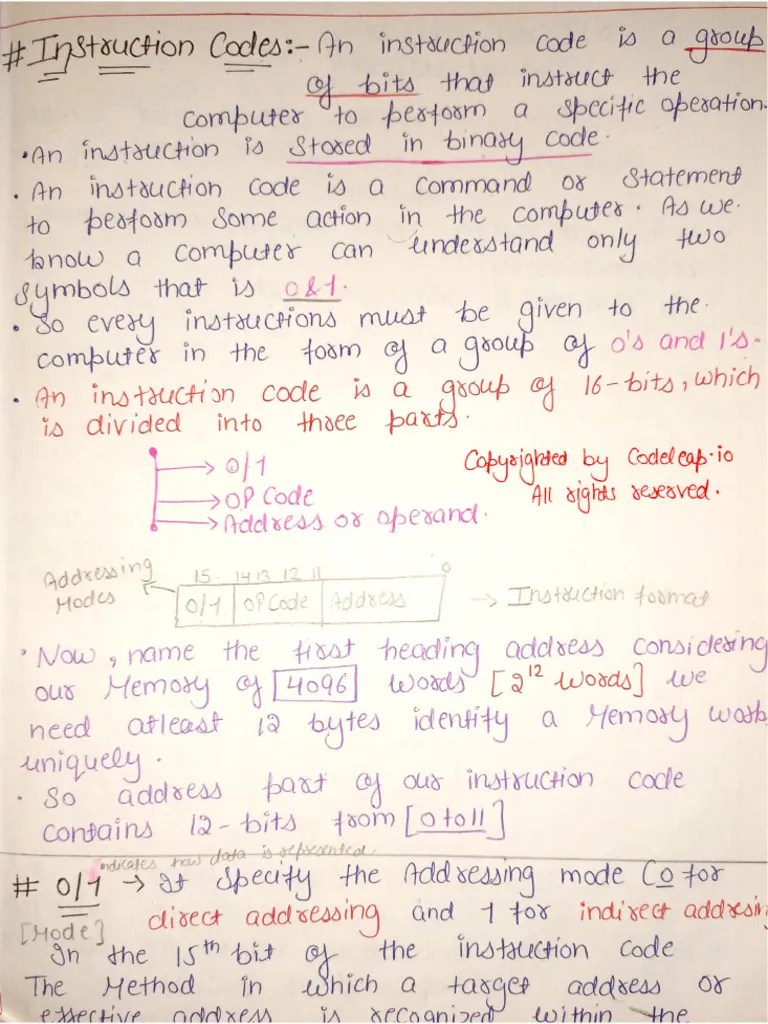 # Instruction Codes:- An instruction code is a group
of bits that instruct the
computer to perform a specific operation.
• An instruction is stored in binary code.
• An instruction code is a command or statement
to perform some action in the computer. As we
know a computer can understand only two
symbols that is 0 & 1.
• So every instructions must be given to the
computer in the form of a group of 0's and 1's.
• An instruction code is a group of 16-bits, which
is divided into three parts.
→ 0/1
→ OP Code
→ Address or operand.
Copyrighted by Codeleap.io
All rights reserved.
Addressing
Modes
15 14 13 12 11 0
0/1 OP Code Address → Instruction format
• Now, name the first heading address considering
our Memory of 4096 words [2^12 words] we
need atleast 12 bytes identify a Memory
uniquely.
• So address part of our instruction code
contains 12-bits from [0 to 11]
indicates how data is represented
# 0/1 → It specify the Addressing mode (0 for
[Mode] direct addressing and 1 for indirect addressin
In the 15th bit of the instruction code
The Method in which a target address or
effective address is recognized within the